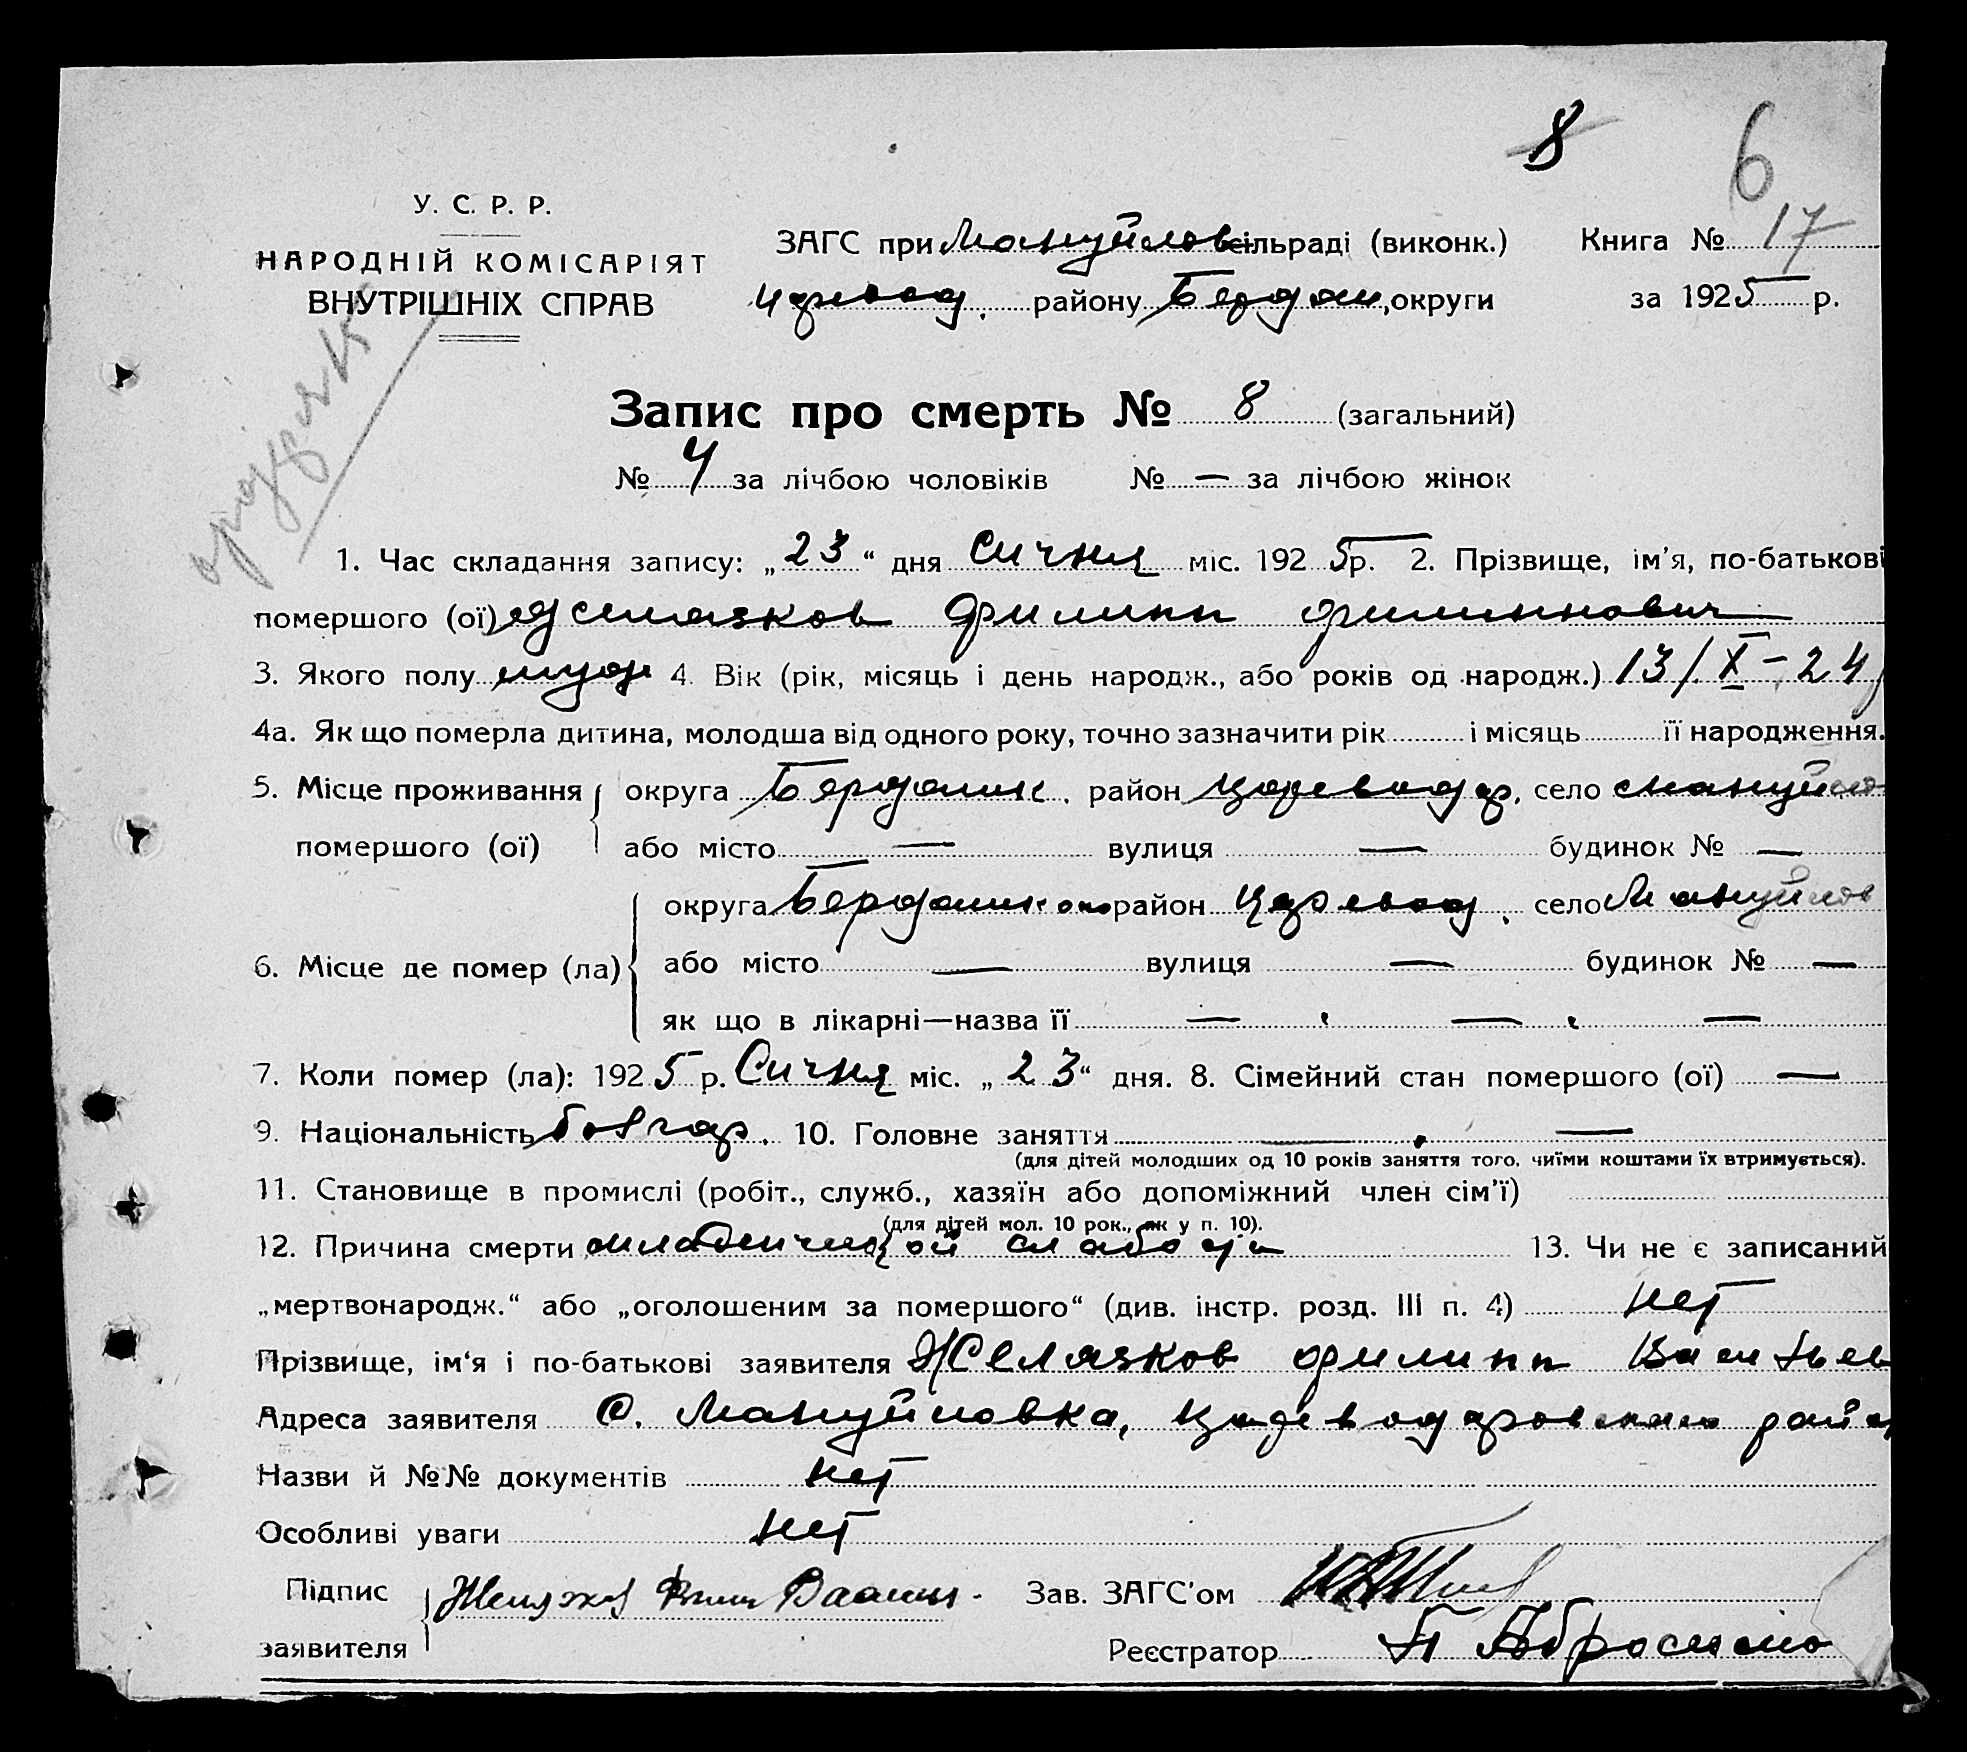 8
6
У. С. Р. Р.
НАРОДНІЙ КОМІСАРІЯТ
ВНУТРІШНІХ СПРАВ
ЗАГС при Мануйлов сільраді (виконк.) Книга № 17
Царевод. району Бердян, округи за 1925 р.
Запис про смерть № 8 (загальний)
№ 4 за лічбою чоловіків № — за лічбою жінок
1. Час складання запису: „23“ дня Сичня міс. 1925 р. 2. Прізвище, ім'я, по-батькові
помершого (ої) Желязков Филипп Филиппович
3. Якого полу муж 4. Вік (рік, місяць і день народж., або років од народж.) 13/X-24
4а. Як що померла дитина, молодша від одного року, точно зазначити рік і місяць її народження.
5. Місце проживання помершого (ої) округа Бердянск, район Цареводар, село Мануйло
або місто — вулиця — будинок № —
6. Місце де помер (ла) округа Бердянско район Царевод, село Мануйлов
або місто — вулиця — будинок № —
як що в лікарні—назва її — , — , —
7. Коли помер (ла): 1925 р. Сичня міс. „23“ дня. 8. Сімейний стан помершого (ої) —
9. Національність болгар. 10. Головне заняття — , —
(для дітей молодших од 10 років заняття того, чиїми коштами їх втримується).
11. Становище в промислі (робіт., служб., хазяїн або допоміжний член сім'ї)
(для дітей мол. 10 рок., як у п. 10).
12. Причина смерти 13. Чи не є записаний
„мертвонародж.“ або „оголошеним за помершого“ (див. інстр. розд. III п. 4) нет
Прізвище, ім'я і по-батькові заявителя Желязков Филипп Васильев
Адреса заявителя С. Мануйловка, Цареводаровского район
Назви й №№ документів нет
Особливі уваги нет
Підпис заявителя Зав. ЗАГС'ом
Реєстратор П Абросимо